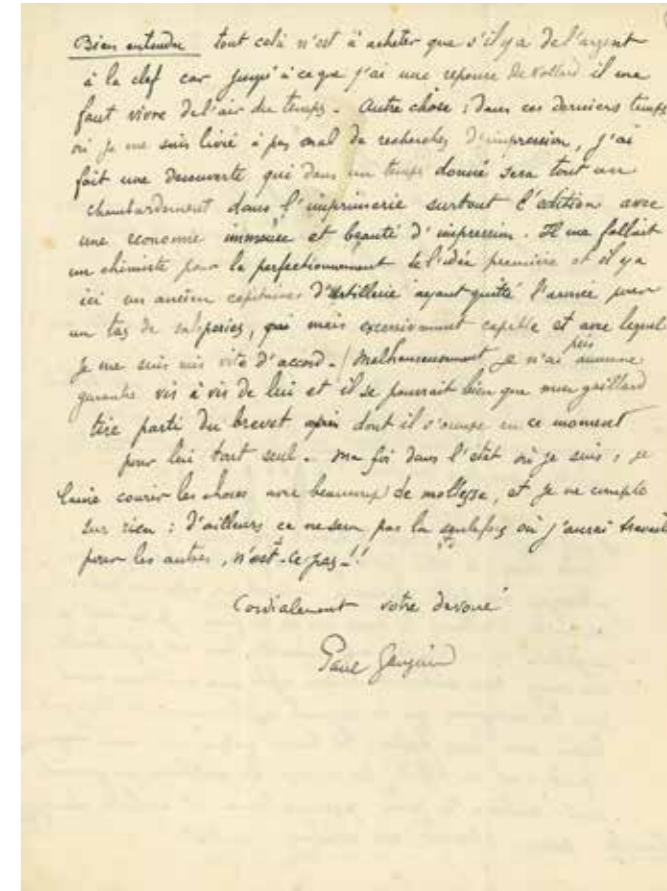 Bien entendu tout celà n'est à acheter que s'il y a de l'argent
à la clef car jusqu'à ce que j'ai une reponse de Vollard il me
faut vivre de l'air du temps. Autre chose : dans ces derniers temps
où je me suis livré à pas mal de recherches d'impression, j'ai
fait une decouverte qui dans un temps donné sera tout un
chambardement dans l'imprimerie surtout l'edition avec
une economie immense et beauté d'impression. Il me fallait
un chimiste pour le perfectionnement de l'idée première et il y a
ici un ancien capitaine d'Artillerie ayant quitté l'armée pour
un tas de saloperies, qui mais excessivement capable et avec lequel
je me suis mis vite d'accord. / Malheureusement je n'ai pris aucune
garantie vis à vis de lui et il se pourrait bien que mon gaillard
tire parti du brevet après dont il s'occupe en ce moment
pour lui tout seul. Ma foi dans l'etat où je suis, je
laisse courir les choses avec beaucoup de mollesse, et je ne compte
sur rien : d'ailleurs ce ne sera pas la seule fois où j'aurai travaillé
pour les autres, n'est-ce pas !!
Cordialement votre devoué
Paul Gauguin